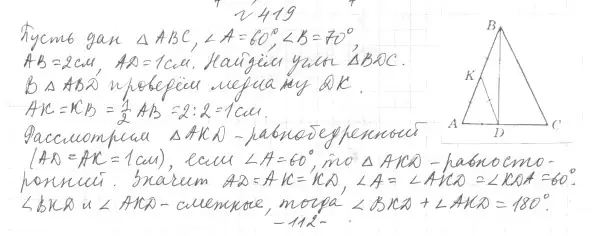 №419
Пусть дан △ABC, ∠A=60°, ∠B=70°,
AB=2см, AD=1см. Найдём углы △BDC.
В △ABD проведём медиану DK.
AK=KB=1/2 AB=2:2=1см.
Рассмотрим △AKD-равнобедренный
(AD=AK=1см), если ∠A=60°, то △AKD-равносто-
ронний. Значит AD=AK=KD, ∠A=∠AKD=∠KDA=60°.
∠BKD и ∠AKD-смежные, тогда ∠BKD+∠AKD=180°.
B
K
A
D
C
-112-